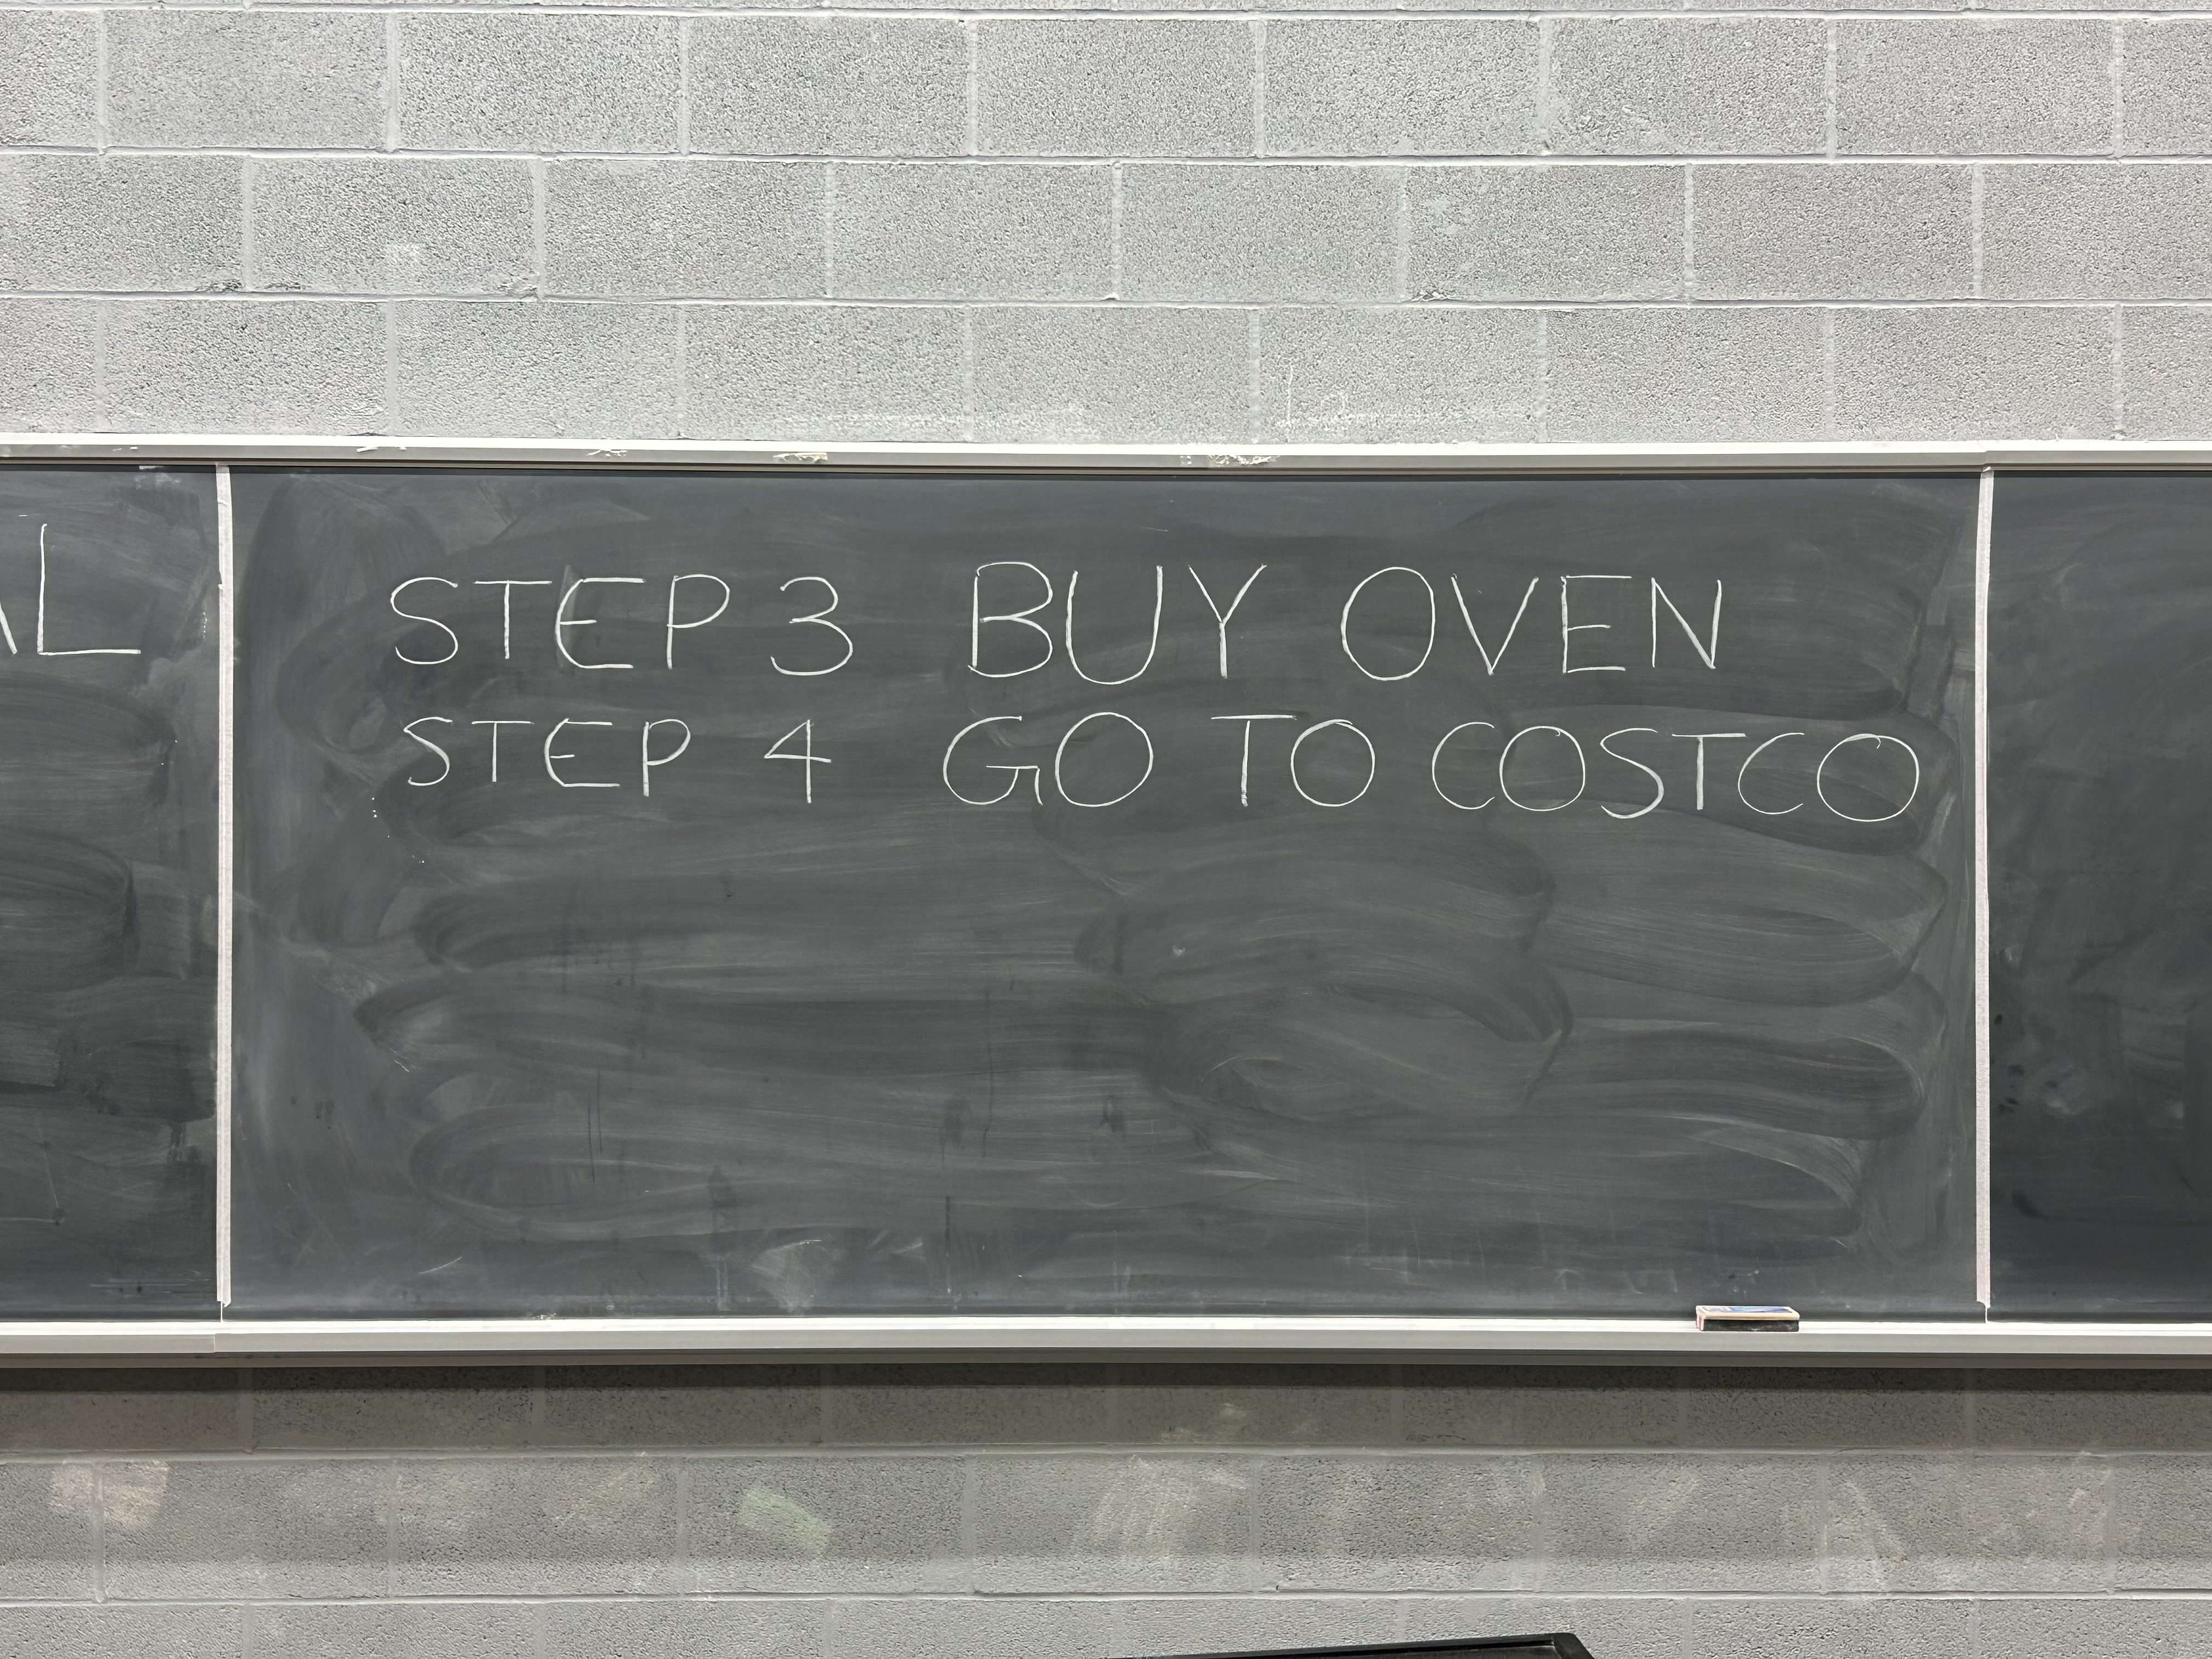 STEP 3 BUY OVEN
STEP 4 GO TO COSTCO